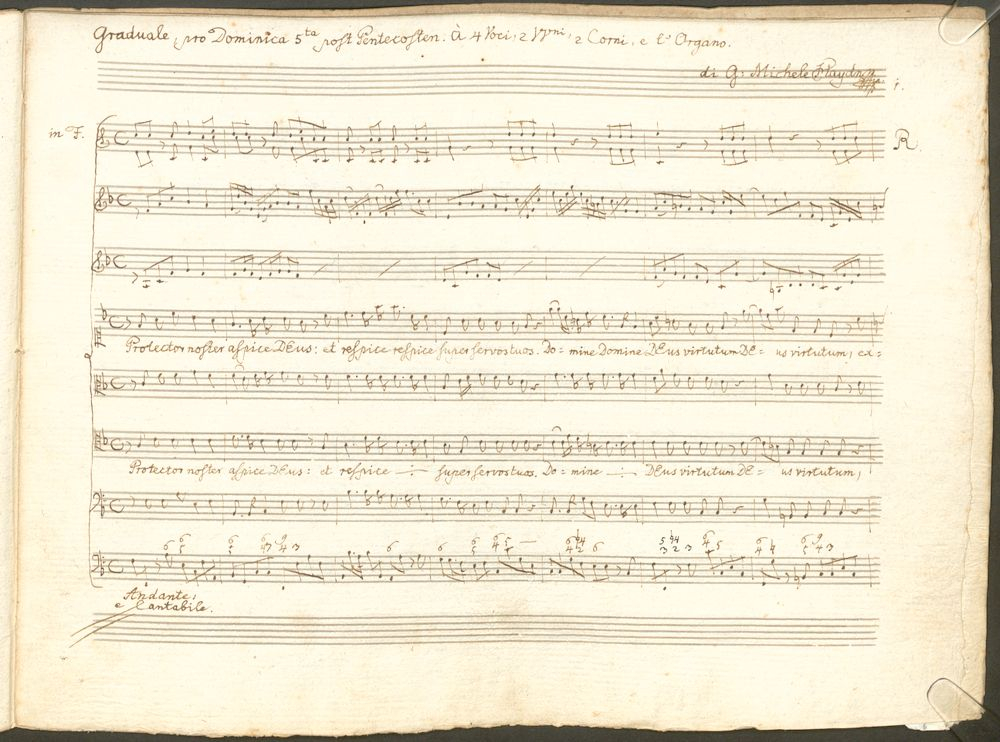 Graduale, pro Dominica 5ta post Pentecosten. À 4 Voci, 2 Vyni, 2 Corni, e l'Organo.
di G: Michele Haydn
1.
in F.
R.
Protector noster aspice DEus: et respice respice super servos tuos. Do= mine Domine DEus virtutum DE= us virtutum, ex=
Protector noster aspice DEus: et respice super servos tuos. Do= mine DEus virtutum DE= us virtutum,
Andante,
e Cantabile.